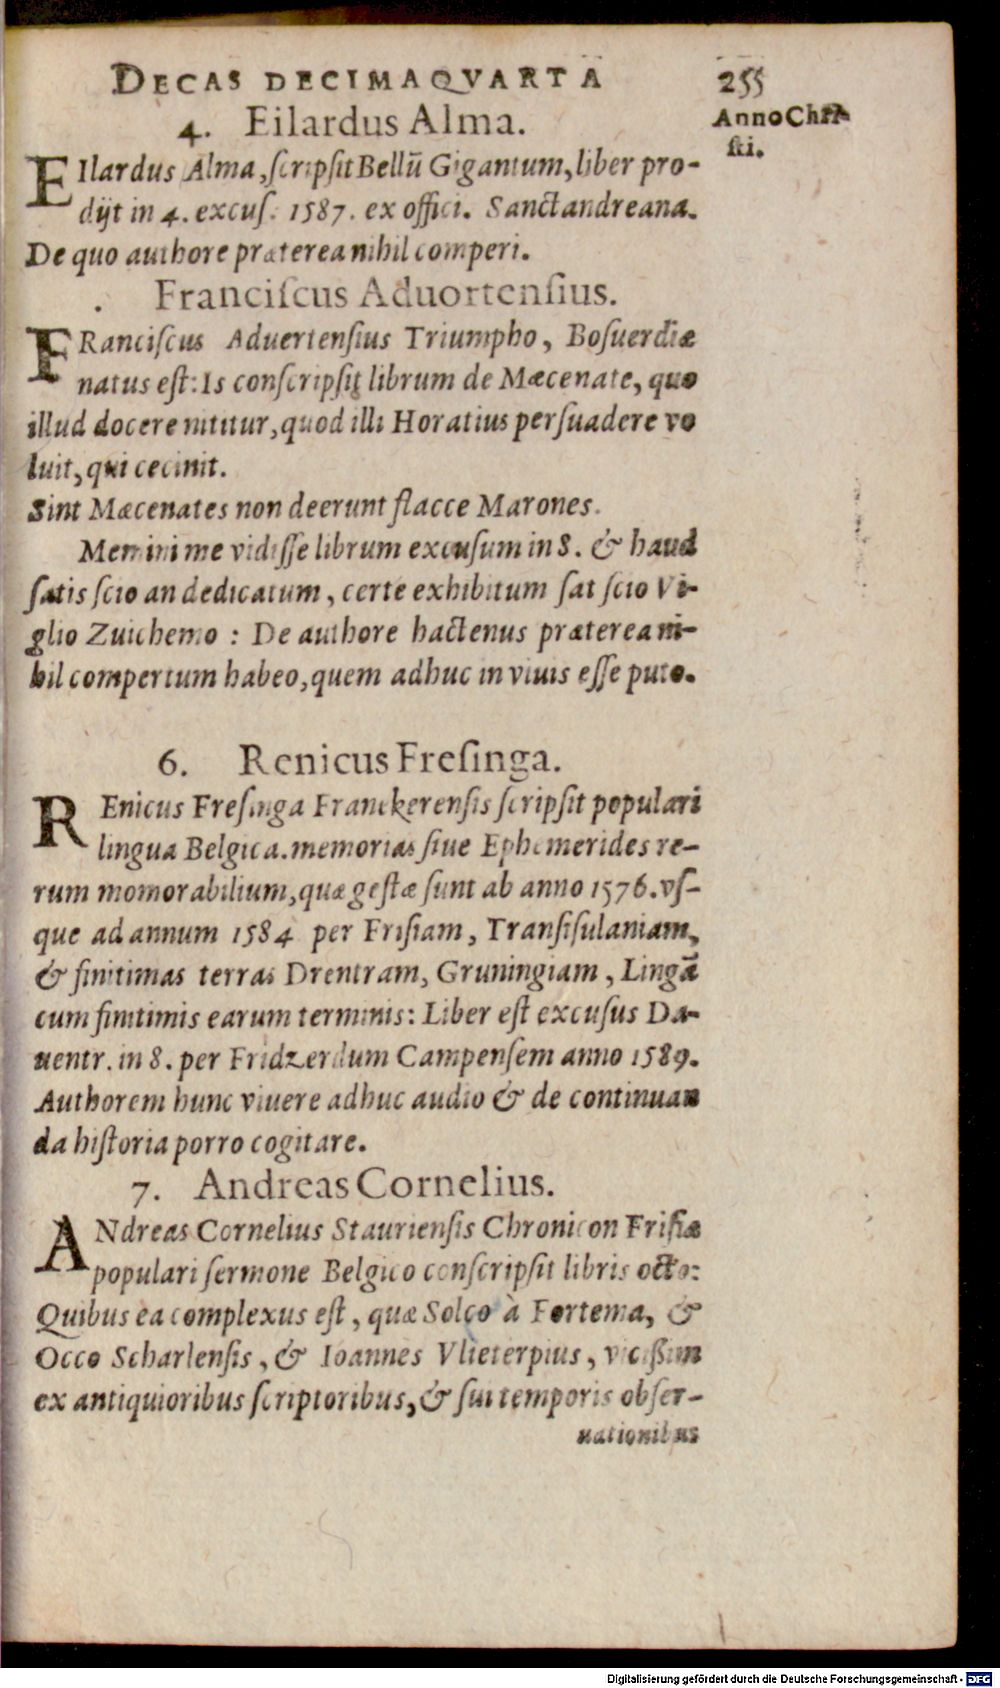 DECAS DECIMAQVARTA 255
Anno Chri-
sti.
4. Eilardus Alma.
EIlardus Alma, ſcripſit Bellū Gigantum, liber pro-
dijt in 4. excuſ. 1587. ex offici. Sanctandreana.
De quo authore præterea nihil comperi.
. Franciſcus Aduortenſius.
FRanciſcus Aduertenſius Triumpho, Boſuerdiæ
natus eſt: Is conſcripſit librum de Mæcenate, quo
illud docere nititur, quod illi Horatius perſuadere vo
luit, qui cecinit.
Sint Mæcenates non deerunt flacce Marones.
Memini me vidiſſe librum excuſum in 8. & haud
ſatis ſcio an dedicatum, certe exhibitum ſat ſcio Vi-
glio Zuichemo : De authore hactenus præterea ni-
hil compertum habeo, quem adhuc in viuis eſſe puto.
6. Renicus Freſinga.
REnicus Freſinga Franckerenſis ſcripſit populari
lingua Belgica. memorias ſiue Ephemerides re-
rum momorabilium, quæ geſtæ ſunt ab anno 1576. vſ-
que ad annum 1584 per Friſiam, Tranſiſulaniam,
& finitimas terras Drentram, Gruningiam, Lingā
cum finitimis earum terminis: Liber eſt excuſus Da-
uentr. in 8. per Fridzerdum Campenſem anno 1589.
Authorem hunc viuere adhuc audio & de continuan
da hiſtoria porro cogitare.
7. Andreas Cornelius.
ANdreas Cornelius Staurienſis Chronicon Friſiæ
populari ſermone Belgico conſcripſit libris octo:
Quibus ea complexus eſt, quæ Solco à Fortema, &
Occo Scharlenſis, & Ioannes Vlieterpius, viciſſim
ex antiquioribus ſcriptoribus, & ſui temporis obſer-
uationibus
Digitalisierung gefördert durch die Deutsche Forschungsgemeinschaft - DFG